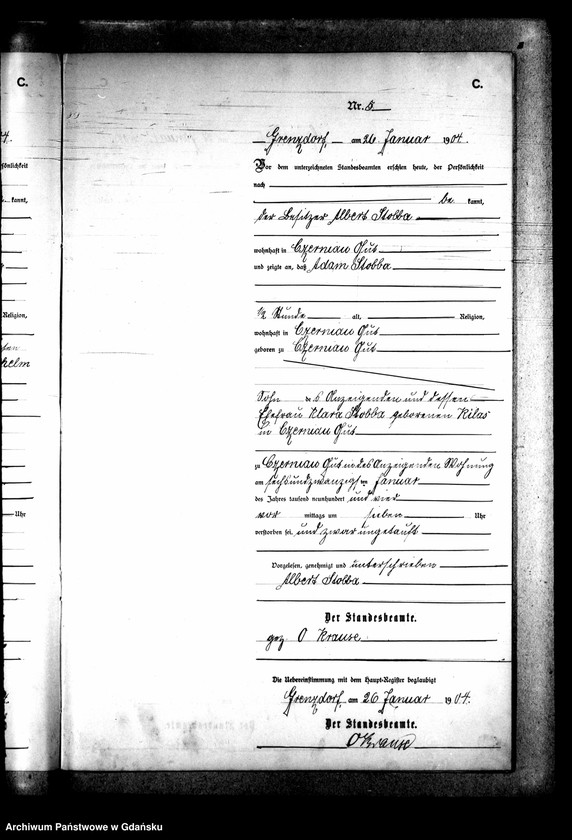 C.
C.
04.
sönlichkeit
kannt,
Religion,
helm
Uhr
Nr. 5
Grenzdorf, am 26 Januar 1904.
Vor dem unterzeichneten Standesbeamten erschien heute, der Persönlichkeit
nach
be kannt,
der Besitzer Albert Stobba
wohnhaft in Czerniau Gut
und zeigte an, daß Adam Stobba
1/2 Stunde alt, Religion,
wohnhaft in Czerniau Gut
geboren zu Czerniau Gut
Sohn des Anzeigenden und dessen
Ehefrau Klara Stobba geborenen Kilas
in Czerniau Gut
zu Czerniau Gut in des Anzeigenden Wohnung
am sechsundzwanzigsten Januar
des Jahres tausend neunhundert und vier
vor mittags um sieben Uhr
verstorben sei, und zwar ungetauft
Vorgelesen, genehmigt und unterschrieben
Albert Stobba
Der Standesbeamte.
gez. O Krause.
Die Uebereinstimmung mit dem Haupt-Register beglaubigt
Grenzdorf, am 26 Januar 1904.
Der Standesbeamte.
O Krause
Archiwum Państwowe w Gdańsku